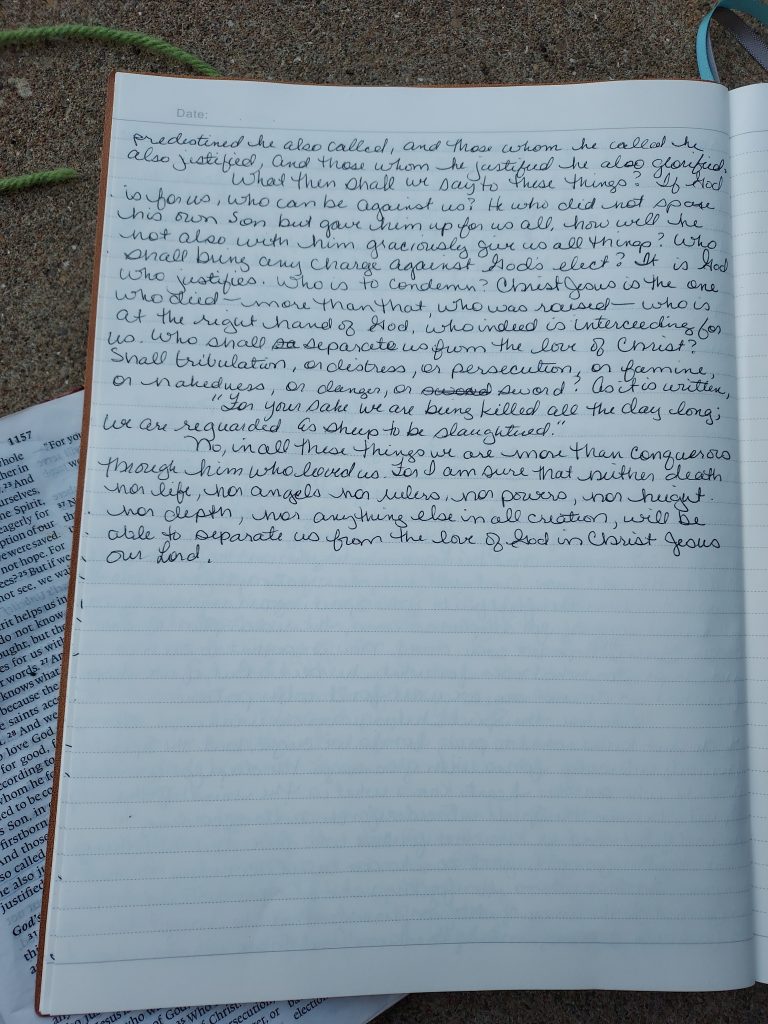 Date:
predestined he also called, and those whom he called he
also justified, and those whom he justified he also glorified.
What then shall we say to these things? If God
is for us, who can be against us? He who did not spare
his own Son but gave him up for us all, how will he
not also with him graciously give us all things? Who
shall bring any charge against God's elect? It is God
who justifies. Who is to condemn? Christ Jesus is the one
who died - more than that, who was raised - who is
at the right hand of God, who indeed is interceeding for
us. Who shall sa separate us from the love of Christ?
Shall tribulation, or distress, or persecution, or famine,
or nakedness, or danger, or sword sword? As it is written,
"For your sake we are being killed all the day long;
we are reguarded as sheep to be slaughtered."
No, in all these things we are more than conquerors
through him who loved us. For I am sure that neither death
nor life, nor angels nor rulers, nor powers, nor height
nor depth, nor anything else in all creation, will be
able to separate us from the love of God in Christ Jesus
our Lord.
1157
"For you
whole
23 And
urselves,
he Spirit,
eagerly for
ption of our
were saved.
not hope. For
ees? 25 But if we
not see, we wa
rit helps us in
do not know
ought, but the
es for us with
words. 27 An
knows what
because the
e saints acc
28 And we
love God
for good,
ccording to
whom he fo
ed to be co
s Son, in
firstborn
nd those
so called
he also ju
justified
God's
31